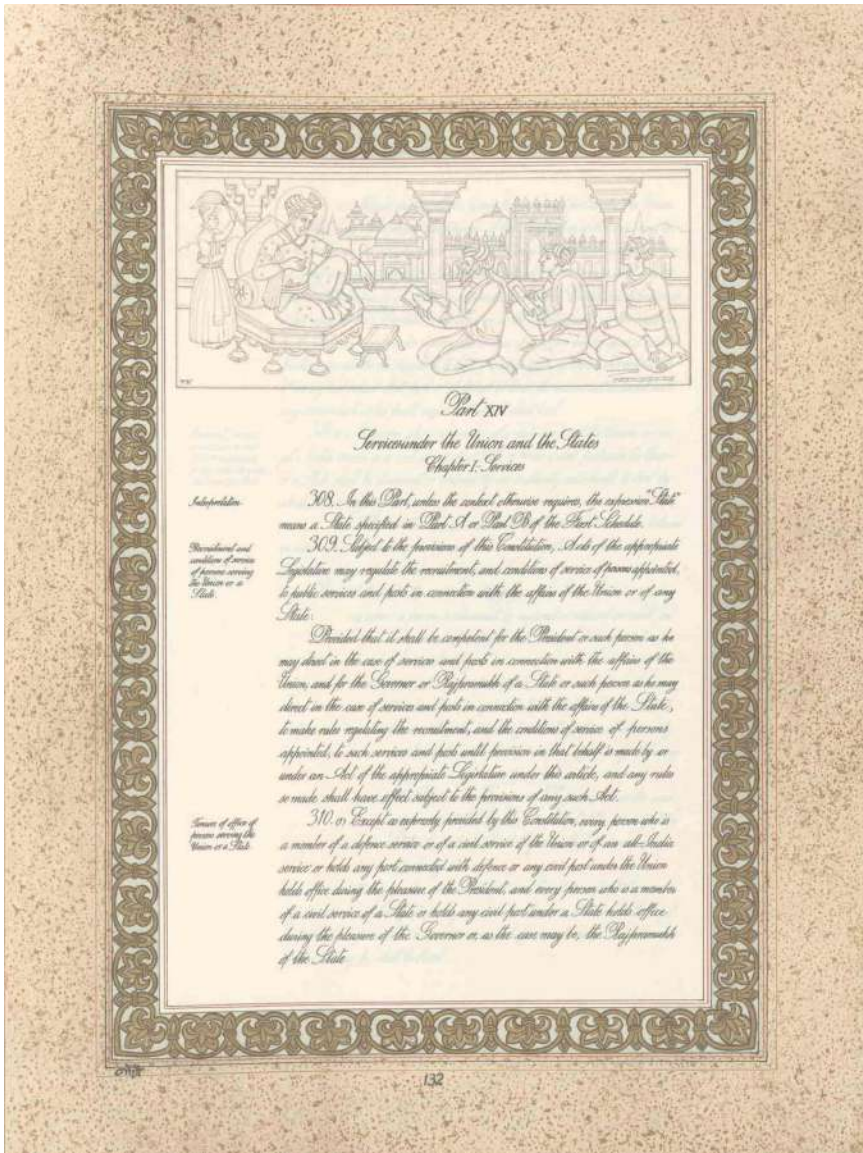 Part XIV
Services under the Union and the States
Chapter I.- Services
Interpretation
308. In this Part, unless the context otherwise requires, the expression "State"
means a State specified in Part A or Part B of the First Schedule.
Recruitment and
conditions of service
of persons serving
the Union or a
State.
309. Subject to the provisions of this Constitution, Acts of the appropriate
Legislature may regulate the recruitment, and conditions of service of persons appointed,
to public services and posts in connection with the affairs of the Union or of any
State:
Provided that it shall be competent for the President or such person as he
may direct in the case of services and posts in connection with the affairs of the
Union, and for the Governor or Rajpramukh of a State or such person as he may
direct in the case of services and posts in connection with the affairs of the State,
to make rules regulating the recruitment, and the conditions of service of persons
appointed, to such services and posts until provision in that behalf is made by or
under an Act of the appropriate Legislature under this article, and any rules
so made shall have effect subject to the provisions of any such Act.
Tenure of office of
persons serving the
Union or a State.
310. (1) Except as expressly provided by this Constitution, every person who is
a member of a defence service or of a civil service of the Union or of an all-India
service or holds any post connected with defence or any civil post under the Union
holds office during the pleasure of the President, and every person who is a member
of a civil service of a State or holds any civil post under a State holds office
during the pleasure of the Governor or, as the case may be, the Rajpramukh
of the State
132